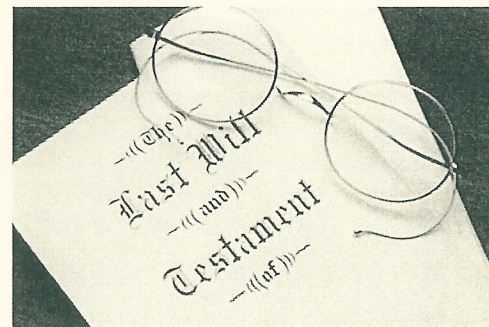 ~((The))~
Last Will
~((and))~
Testament
~((of))~